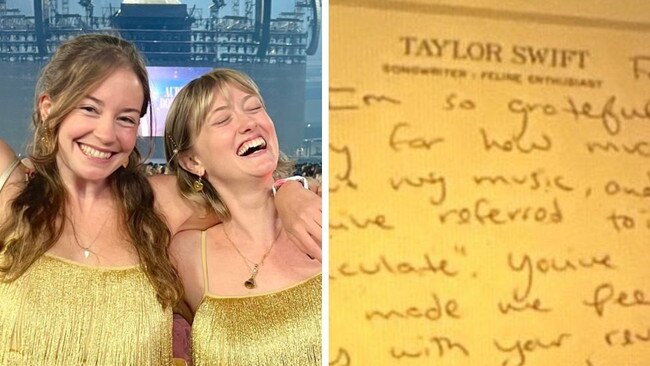 TAYLOR SWIFT
SONGWRITER · FELINE ENTHUSIAST
I'm so grateful
y for how much
my music, and
ive referred to
culate". You've
made me fee
with your rev